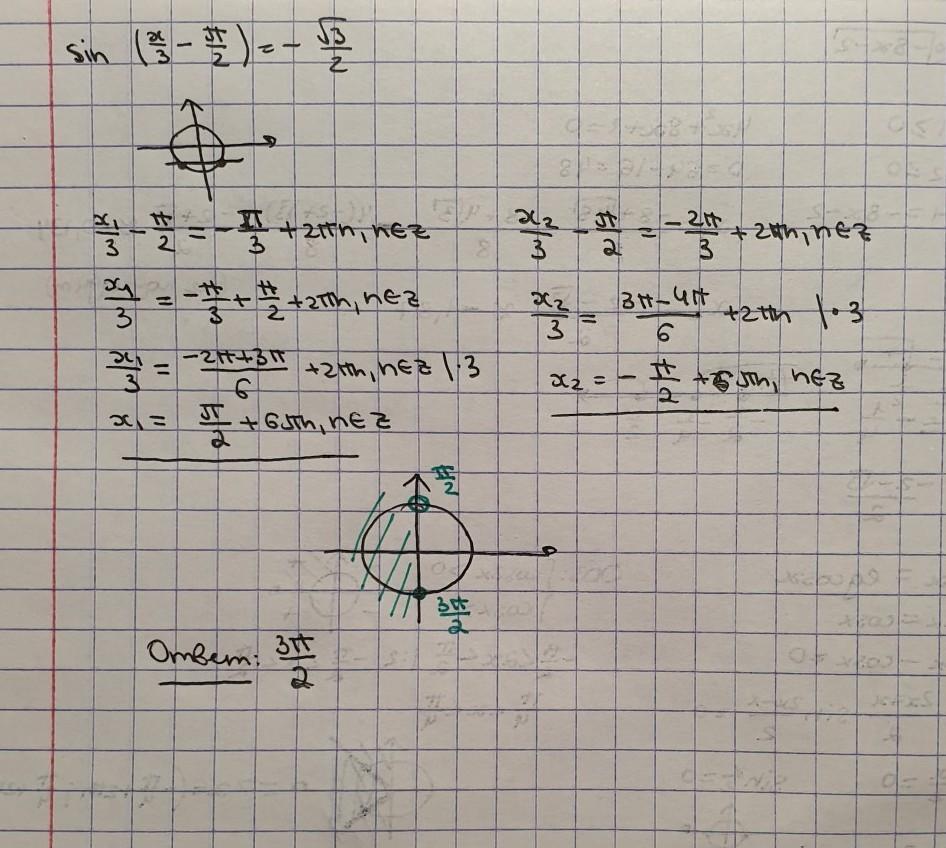 sin (x/3 - π/2) = - √3/2
x₁/3 - π/2 = - π/3 + 2πn, n∈z
x₁/3 = -π/3 + π/2 + 2πn, n∈z
x₁/3 = (-2π+3π)/6 + 2πn, n∈z |·3
x₁ = π/2 + 6πn, n∈z
x₂/3 - π/2 = -2π/3 + 2πn, n∈z
x₂/3 = (3π-4π)/6 + 2πn |·3
x₂ = - π/2 + 6πn, n∈z
π/2
3π/2
Ответ: 3π/2